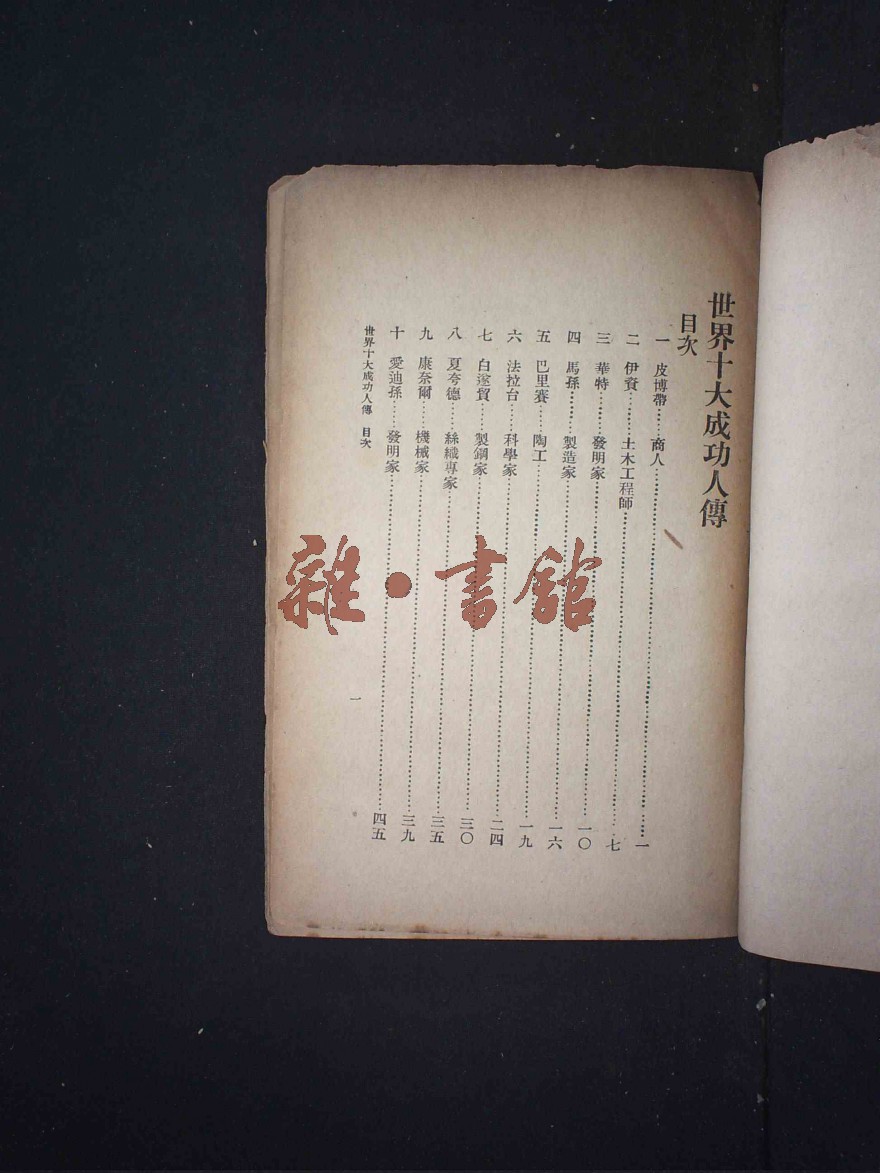 世界十大成功人傳
目次
一 皮博帶……商人……一
二 伊資……土木工程師……七
三 華特……發明家……一〇
四 馬孫……製造家……一六
五 巴里賽……陶工……一九
六 法拉台……科學家……二四
七 白塞貿……製鋼家……三〇
八 夏夸德……絲織專家……三五
九 康奈爾……機械家……三九
十 愛迪孫……發明家……四五
世界十大成功人傳 目次
一
雜·書館